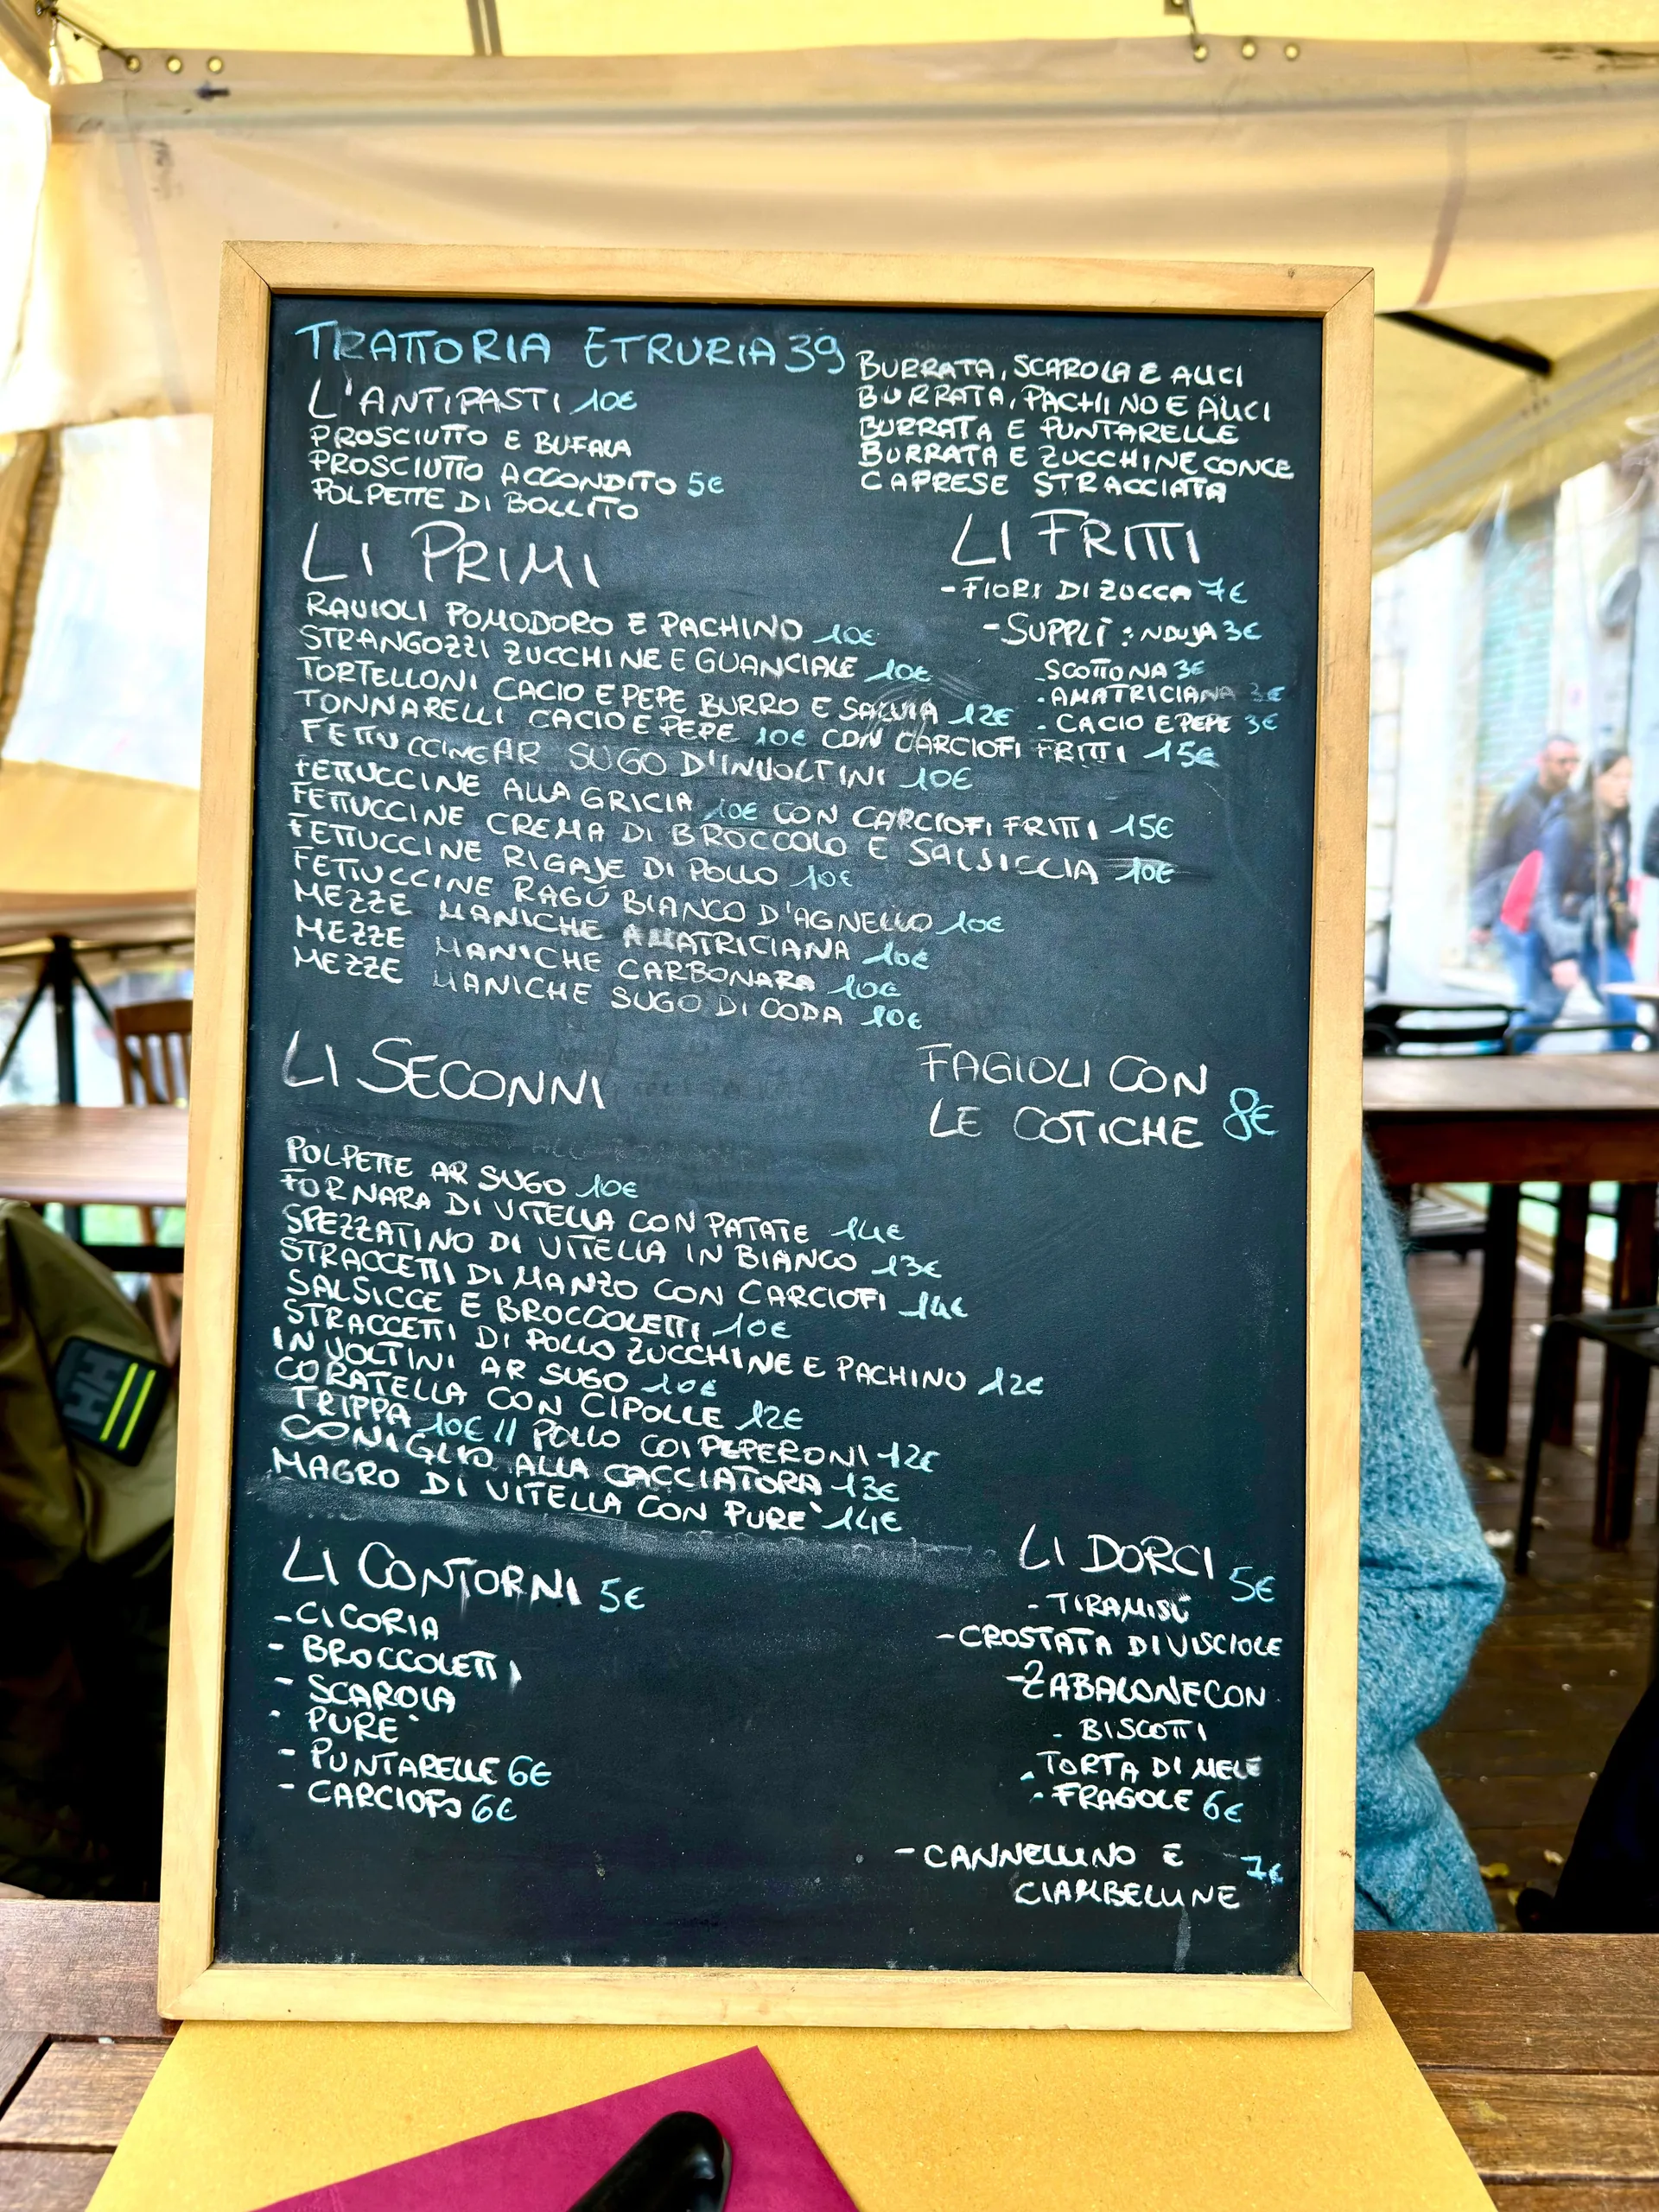 TRATTORIA ETRURIA 39
L'ANTIPASTI 10€
PROSCIUTTO E BUFALA
PROSCIUTTO ACCONDITO 5€
POLPETTE DI BOLLITO
BURRATA, SCAROLA E ALICI
BURRATA, PACHINO E ALICI
BURRATA E PUNTARELLE
BURRATA E ZUCCHINE CONCE
CAPRESE STRACCIATA
LI FRITTI
- FIORI DI ZUCCA 7€
- SUPPLÌ : NDUJA 3€
- SCOTTONA 3€
- AMATRICIANA 3€
- CACIO E PEPE 3€
LI PRIMI
RAVIOLI POMODORO E PACHINO 10€
STRANGOZZI ZUCCHINE E GUANCIALE 10€
TORTELLONI CACIO E PEPE BURRO E SALVIA 12€
TONNARELLI CACIO E PEPE 10€ CON CARCIOFI FRITTI 15€
FETTUCCINE AR SUGO D'INVOLTINI 10€
FETTUCCINE ALLA GRICIA 10€ CON CARCIOFI FRITTI 15€
FETTUCCINE CREMA DI BROCCOLO E SALSICCIA 10€
FETTUCCINE RIGAJE DI POLLO 10€
FETTUCCINE RAGÙ BIANCO D'AGNELLO 10€
MEZZE MANICHE AMATRICIANA 10€
MEZZE MANICHE CARBONARA 10€
MEZZE MANICHE SUGO DI CODA 10€
LI SECONNI
FAGIOLI CON
LE COTICHE 8€
POLPETTE AR SUGO 10€
FORNARA DI VITELLA CON PATATE 14€
SPEZZATINO DI VITELLA IN BIANCO 13€
STRACCETTI DI MANZO CON CARCIOFI 14€
SALSICCE E BROCCOLETTI 10€
STRACCETTI DI POLLO ZUCCHINE E PACHINO 12€
INVOLTINI AR SUGO 10€
CORATELLA CON CIPOLLE 12€
TRIPPA 10€ // POLLO COI PEPERONI 12€
CONIGLIO ALLA CACCIATORA 13€
MAGRO DI VITELLA CON PURE' 14€
LI CONTORNI 5€
- CICORIA
- BROCCOLETTI
- SCAROLA
- PURE'
- PUNTARELLE 6€
- CARCIOFO 6€
LI DORCI 5€
- TIRAMISÙ
- CROSTATA DI VISCIOLE
- ZABALONE CON
- BISCOTTI
- TORTA DI MELE
- FRAGOLE 6€
- CANNELLINO E 7€
CIAMBELLINE
HH